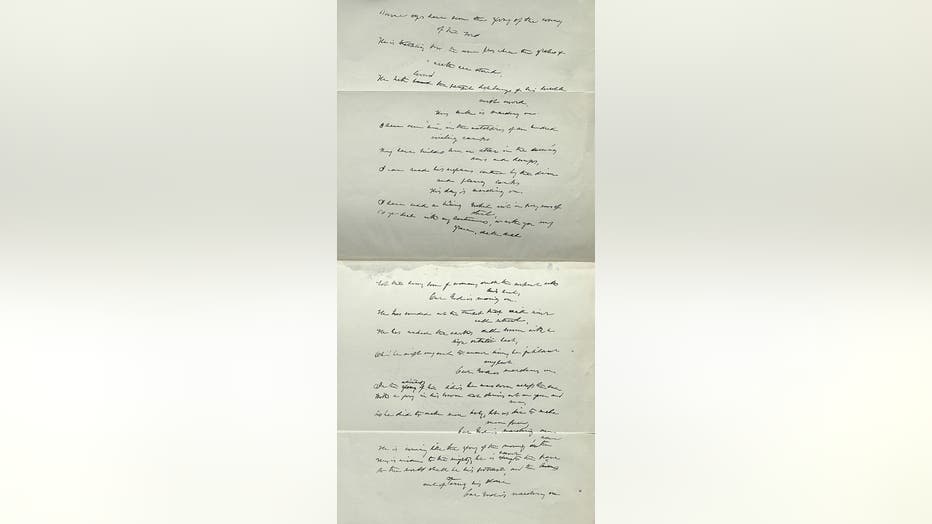 eyes have seen the glory of the coming
of the Lord
He is trampling out the wine press where the grapes of
wrath are stored,
He hath loosed the fateful lightnings of his terrible
swift sword,
His truth is marching on.
I have seen him in the watchfires of an hundred
circling camps
They have builded him an altar in the evening
dews and damps,
I can read his righteous sentence by the dim
and flaring lamps
His day is marching on.
I have read a burning Gospel writ in rows of
steel,
As ye deal with my contemners, so with you my
grace shall deal
Let the hero born of woman crush the serpent with
his heel,
Our God is marching on.
He has sounded out the trumpet that shall never
call retreat,
He has
Oh! be swift my soul to answer him, be jubilant
my feet
Our God is marching on.
In the of the lilies he was born across the sea
With a glory in his bosom that shines out on you and
me,
As he died to make men holy, let us die to make
men free,
Our God is marching on.
He is coming like the glory of the morning on the
wave
He is to the mighty, he is to the brave
So the world shall be his footstool, and the
of
Our God is marching on